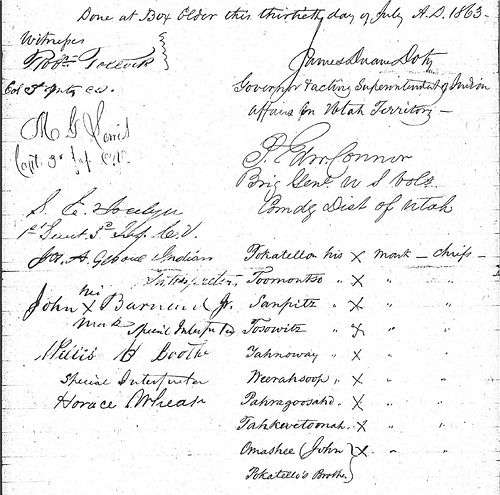 Done at Box Elder this thirtieth day of July A.D. 1863.
Witnesses
Robt. Pollock
Col 3d Infty C.V.
M G Lewis
Capt. 3d Inf C.V.
S. E. Jocelyn
1st Lieut 3d Inf. C.V.
Jos. A. Gebow Indian
Interpreter
his
John X Barnard Jr.
mark Special Interpreter
Willis H Boothe
Special Interpreter
Horace Wheat
James Duane Doty
Governor & acting Superintendent of Indian
affairs for Utah Territory —
P. Edw. Connor
Brig Genl. U S Vols.
Comdg Dist of Utah
Pokatello his X mark — chief —
Toomontso " X " "
Sanpitz " X " "
Tosowitz " X " "
Yahnoway " X " "
Weerahsoop " X " "
Pahragoosahd " X " "
Tahkevetoonah " X " "
Omashee (John X " "
Pokatello's Brother)